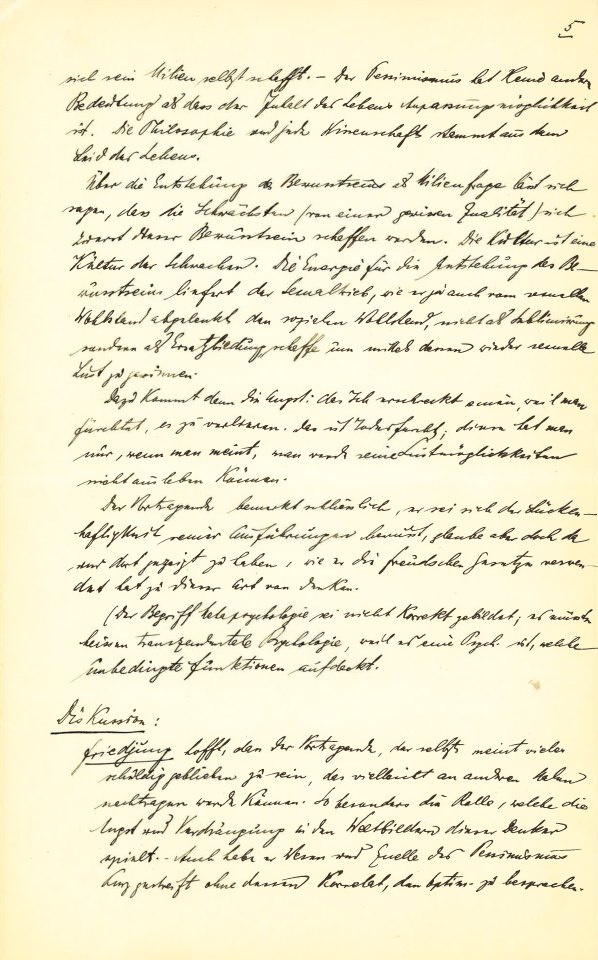 5
sich sein Milieu selbst schafft. – Der Pessimismus hat keine andere
Bedeutung als dass der Inhalt des Lebens Anpassungsmöglichkeit
ist. Die Philosophie und jede Wissenschaft stammt aus dem
Leid des Lebens.
Über die Entstehung des Bewusstseins als Milieufrage lässt sich
sagen, dass die Schwächsten (von einer gewissen Qualität) sich
zuerst dieser Bewusstsein schaffen werden. Die Kultur ist eine
Kultur der Schwachen. Die Energie für die Entstehung des Be-
wusstseins liefert der Sexualtrieb, wie er ja auch vom sexuellen
Wohlstand abgelenkt den sozialen Wohlstand, nicht als Sublimierung
sondern als Ersatzbildung schaffe um mittels dessen wieder sexuelle
Lust zu gewinnen.
Dazu kommt dann die Angst: das Ich erschreckt einen, weil man
fürchtet, es zu verlieren. Das ist Todesfurcht; diese hat man
nur, wenn man meint, man werde seine Lustmöglichkeiten
nicht ausleben können.
Der Vortragende bemerkt schliesslich, er sei sich der Lücken-
haftigkeit seiner Ausführungen bewusst, glaube aber doch da
und dort gezeigt zu haben, wie er die freudschen Gesetze verwen-
det hat zu dieser Art von Denken.
(Der Begriff Metapsychologie sei nicht korrekt gebildet; es müsste
heissen transzendentale Psychologie, weil es eine Psych. ist, welche
unbedingte Funktionen aufdeckt.
Diskussion:
Friedjung hofft, dass der Vortragende, der selbst meint vieles
schuldig geblieben zu sein, das vielleicht an anderen Stellen
nachtragen werde können. So besonders die Rolle, welche die
Angst und Verdrängung in den Weltbildern dieser Denker
spielt. – Auch habe er Wesen und Quelle des Pessimismus
kurz gestreift ohne dessen Korrelat, den Optim. zu besprechen.